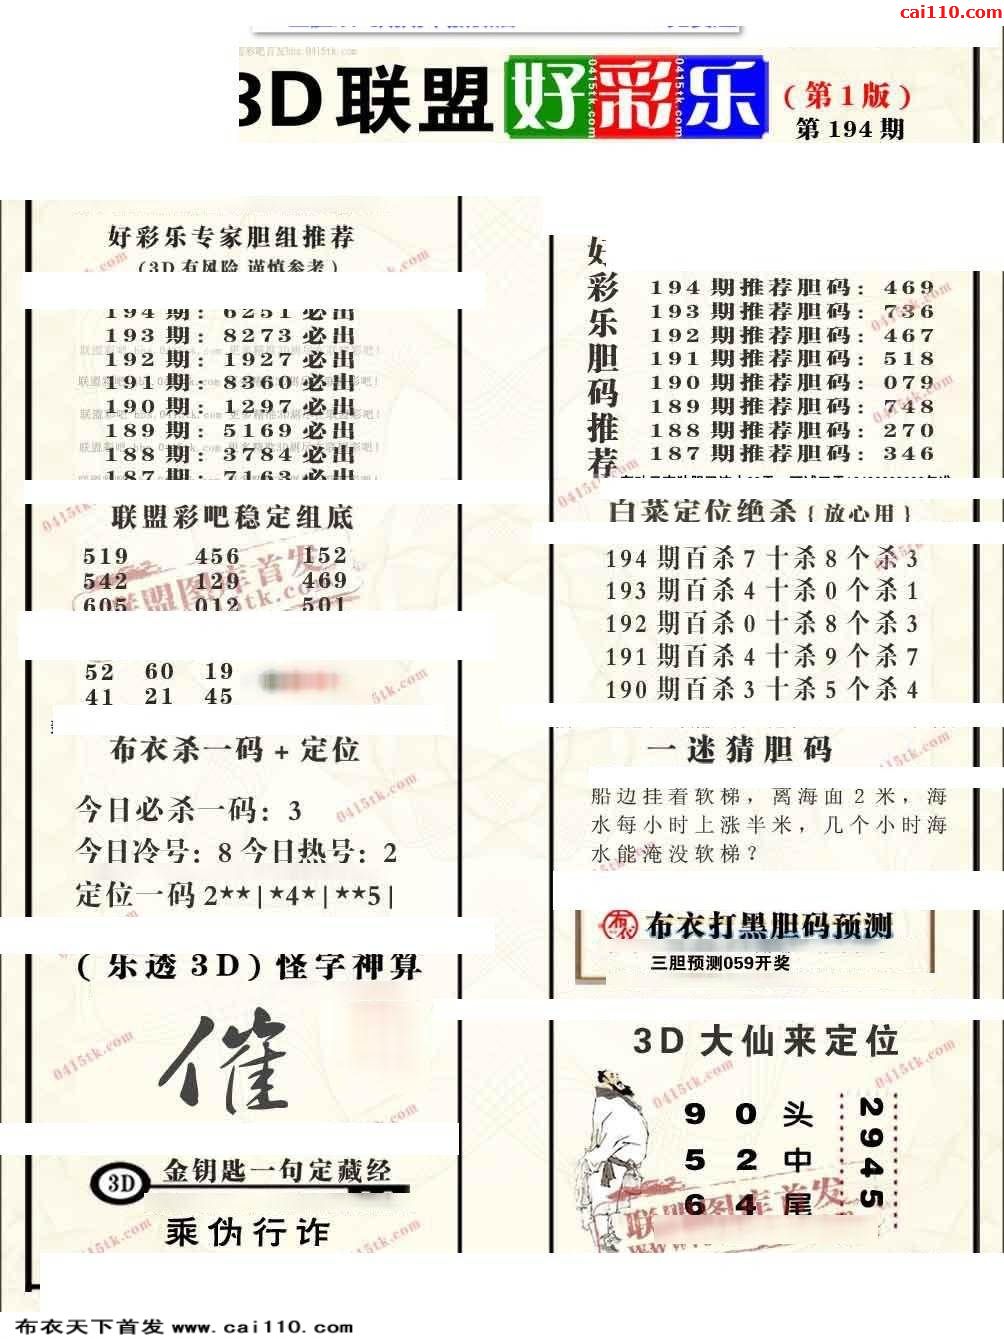 cai110.com
3D联盟好彩乐
(第1版)
第194期
好彩乐专家胆组推荐
(3D有风险 谨慎参考)
194期: 6251必出
193期: 8273必出
192期: 1927必出
191期: 8360必出
190期: 1297必出
189期: 5169必出
188期: 3784必出
187期: 7163必出
联盟彩吧稳定组底
519 456 152
542 129 469
605 012 501
52 60 19
41 21 45
布衣杀一码+定位
今日必杀一码: 3
今日冷号: 8 今日热号: 2
定位一码 2**|*4*|**5|
(乐透3D)怪字神算
催
3D 金钥匙一句定藏经
乘伪行诈
好彩乐胆码推荐
194期推荐胆码: 469
193期推荐胆码: 736
192期推荐胆码: 467
191期推荐胆码: 518
190期推荐胆码: 079
189期推荐胆码: 748
188期推荐胆码: 270
187期推荐胆码: 346
白菜定位绝杀{放心用}
194期百杀7十杀8个杀3
193期百杀4十杀0个杀1
192期百杀0十杀8个杀3
191期百杀4十杀9个杀7
190期百杀3十杀5个杀4
一迷猜胆码
船边挂着软梯，离海面2米，海
水每小时上涨半米，几个小时海
水能淹没软梯？
布衣 布衣打黑胆码预测
三胆预测059开奖
3D大仙来定位
9 0 头
5 2 中
6 4 尾
2945
联盟图库首发
0415tk.com
布衣天下首发 www.cai110.com